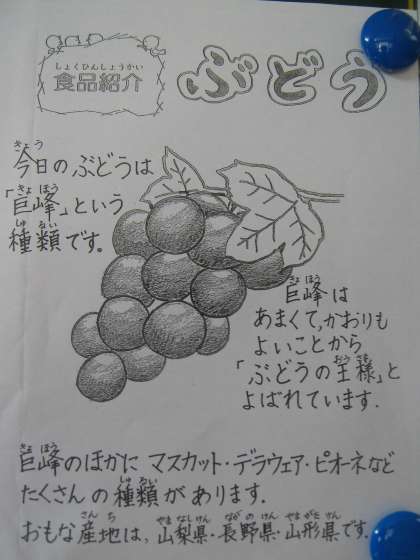 しょくひんしょうかい
食品紹介
ぶどう
きょう
今日のぶどうは
きょほう
「巨峰」という
しゅるい
種類です。
きょほう
巨峰は
あまくて,かおりも
よいことから
おうさま
「ぶどうの王様」と
よばれています.
きょほう
巨峰のほかに マスカット・デラウェア・ピオーネなど
しゅるい
たくさんの種類があります。
さんち やまなしけん ながのけん やまがたけん
おもな産地は、山梨県・長野県・山形県です。